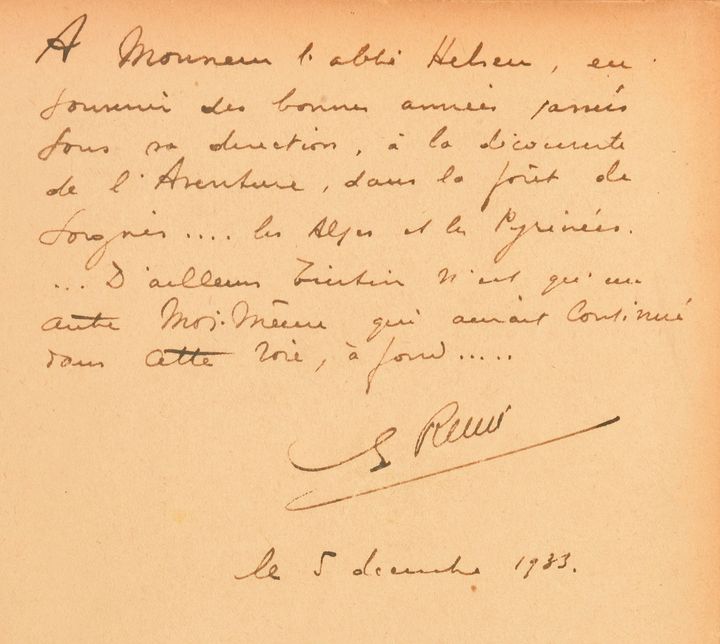 A Monsieur l'abbé Helsen, en
souvenir des bonnes années passées
sous sa direction, à la découverte
de l'Aventure, dans la forêt de
Soignes .... les Alpes et les Pyrénées.
... D'ailleurs Tintin n'est qu'un
autre Moi-Même qui aurait continué
dans cette voie, à fond .....
G Remi
le 5 décembre 1933.